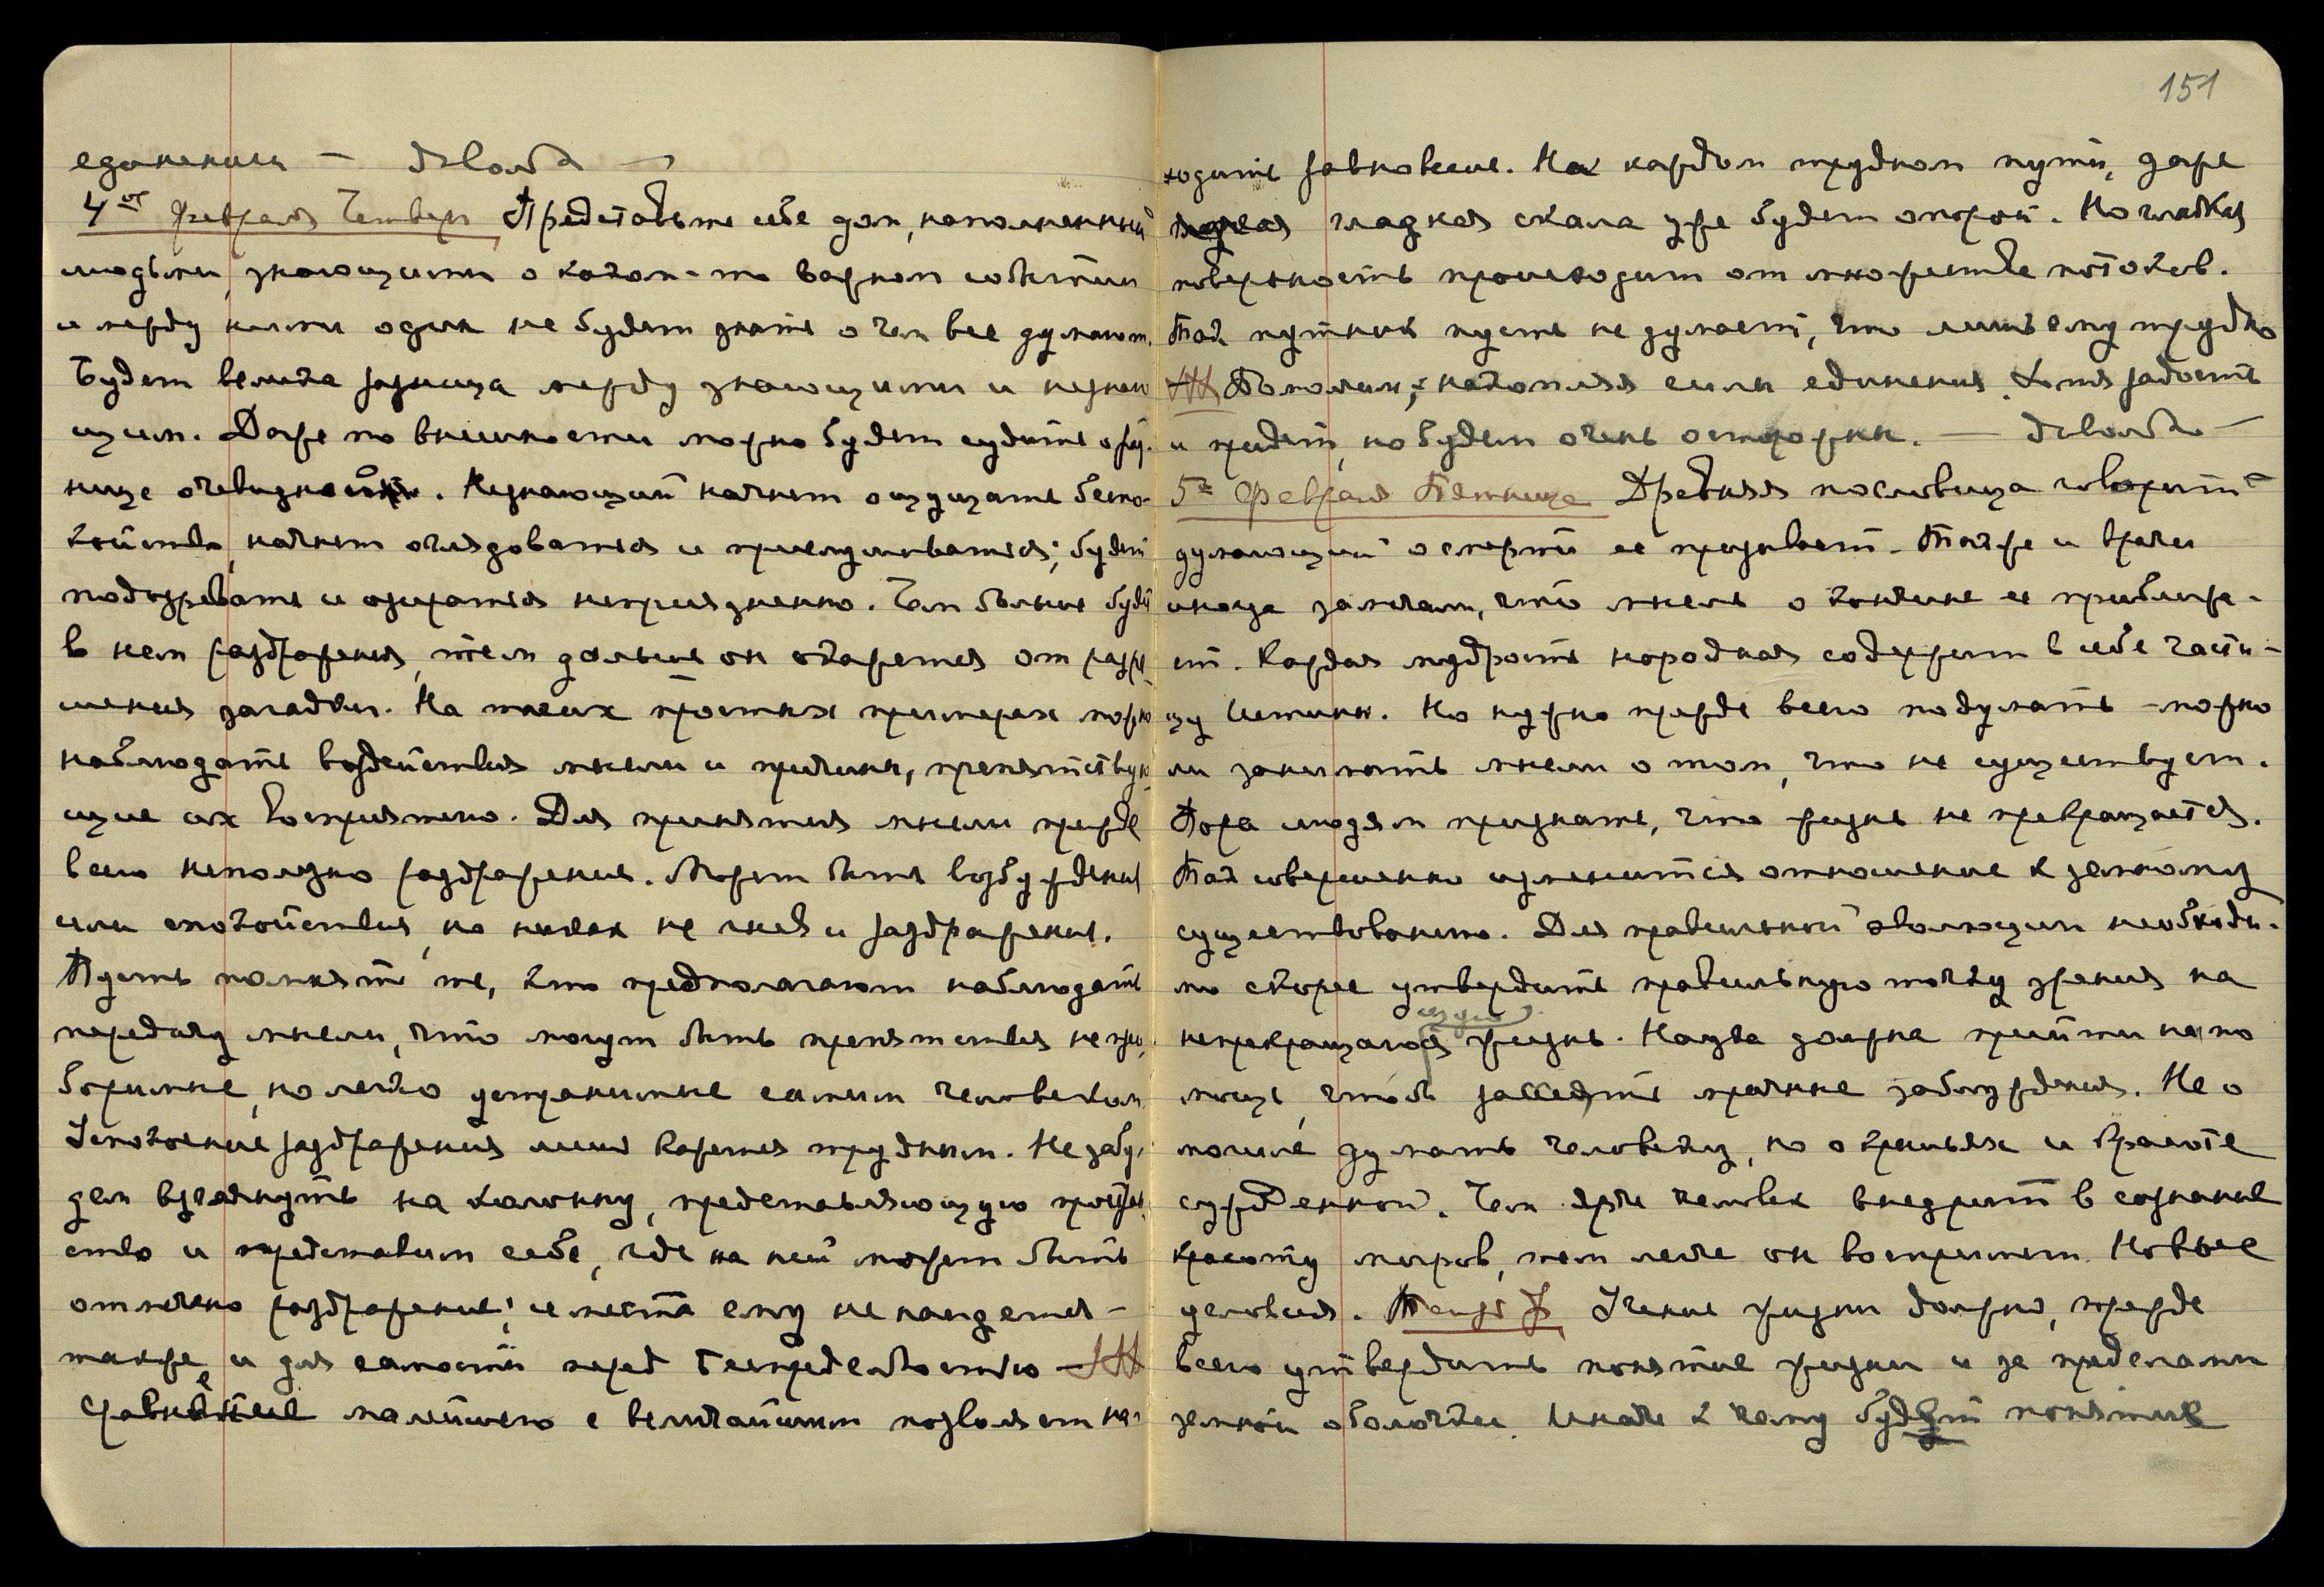 единении — Довольно —
4ое Февраля Четверг Представьте себе дом, наполненный
людьми, знающими о каком-то важном событии
и между ними один не будет знать о чем все думают.
Будет велика разница между знающими и незнаю
щим. Даже по внешности можно будет судить о раз-
нице очевидности. Незнающий начнет ощущать беспо-
койство, начнет оглядоваться и прислушиваться; будет
подозревать и озираться неприязненно. Чем больше будет
в нем раздражения, тем дальше он окажется от разре-
шения загадки. На таких простых примерах можно
наблюдать воздействия мысли и причины, препятствую-
щие их восприятию. Для принятия мысли прежде
всего неполезно раздражение. Может быть возбуждение
или спокойствие, но никак не гнев и раздражение.
Пусть помнят те, кто предполагают наблюдать
передачу мысли, что могут быть препятствия непрео-
боримые, но легко устранимые самим человеком
Успокоение раздражения лишь кажется трудным. Не забу-
дем взглянуть на колонну, представляющую простран-
ство и представим себе, где на ней может быть
отмечено раздражение; и места ему не найдется —
также и для самости перед Беспредельностью
Сравнение малейшего с величайшим позволяет на-
151
ходить равновесие. На каждом трудном пути, даже
гладкая скала уже будет опорой. Но гладкая
поверхность происходит от множества потоков.
Так путник пусть не думает, что лишь ему трудно
Помолчим, накопляя силы единения. Хотя радость
и придет, но будем очень осторожны. — Довольно —
5е Февраля Пятница Древняя пословица говорит —
думающий о смерти ее призывает. Также и врачи
иногда замечали, что мысль о кончине ее приближа-
ет. Каждая мудрость народная содержит в себе части-
цу Истины. Но нужно прежде всего подумать — можно
ли занимать мысли о том, что не существует.
Пора людям признать, что жизнь не прекращается.
Так совершенно изменится отношение к земному
существованию. Для правильной эволюции необходи-
мо скорее утвердить правильную точку зрения на
непрекращающуюся жизнь. Наука должна прийти на по
мощь, чтоб рассеять мрачные заблуждения. Не о
могиле думать человеку, но о крыльях и красоте
сужденной. Чем ярче человек внедрит в сознание
красоту миров, тем легче он воспримет Новые
условия. Учение жизни должно, прежде
всего утвердить понятие жизни и за пределами
земной оболочки. Иначе к чему будет понятие